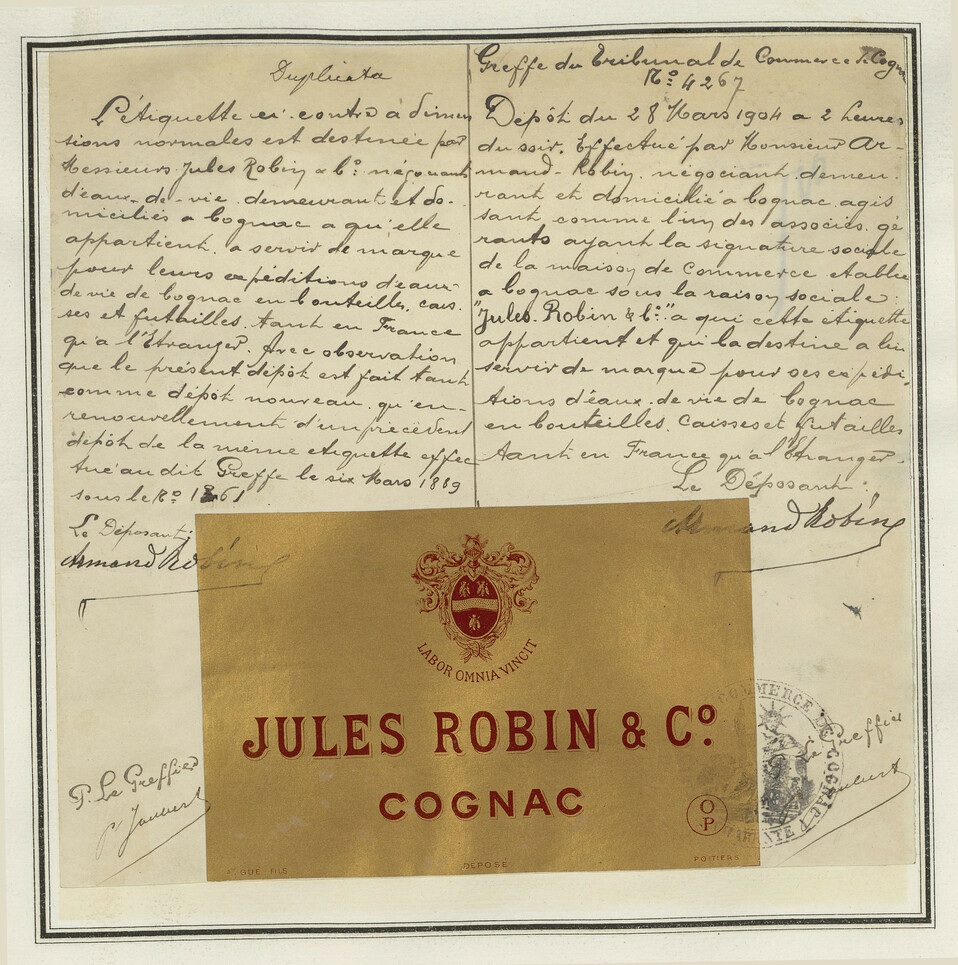 Duplicata
L'étiquette ci-contre à dimen
sions normales est destinée par
Messieurs Jules Robin & Co. négociants
d'eaux-de-vie, demeurant et do-
miciliés a Cognac a qu'elle
appartient, a servir de marque
pour leurs expéditions d'eaux-
de vie de Cognac en bouteilles, cais
ses et futailles, tant en France
qu'a l'Etranger. Avec observation
que le présent dépôt est fait tant
comme dépôt nouveau, qu'en-
renouvellement d'un précédent
dépôt de la même etiquette effec
tué au dit Greffe le six Mars 1889
sous le No.
Le Déposant:
Armand Robin
P. Le Greffier
Greffe du Tribunal de Commerce de Cogna
No. 4267
Depôt du 28 Mars 1904 a 2 heures
du soir. Effectué par Monsieur Ar-
mand-Robin, négociant, demeu-
rant et domicilié a Cognac, agis
sant comme l'un des associés gé
rants ayant la signature sociale
de la maison de Commerce etablie
a Cognac sous la raison sociale:
"Jules Robin & Co." a qui cette étiquette
appartient et qui la destine a lui
servir de marque pour ses expédi-
tions d'eaux-de vie de Cognac
en bouteilles, caisses et futailles
tant en France qu'a l'Etranger.
Le Déposant:
Armand Robin
LABOR OMNIA VINCIT
JULES ROBIN & Co.
COGNAC
OP
GUÉ FILS
DÉPOSÉ
POITIERS
COMMERCE DE COGNAC
Le Greffier